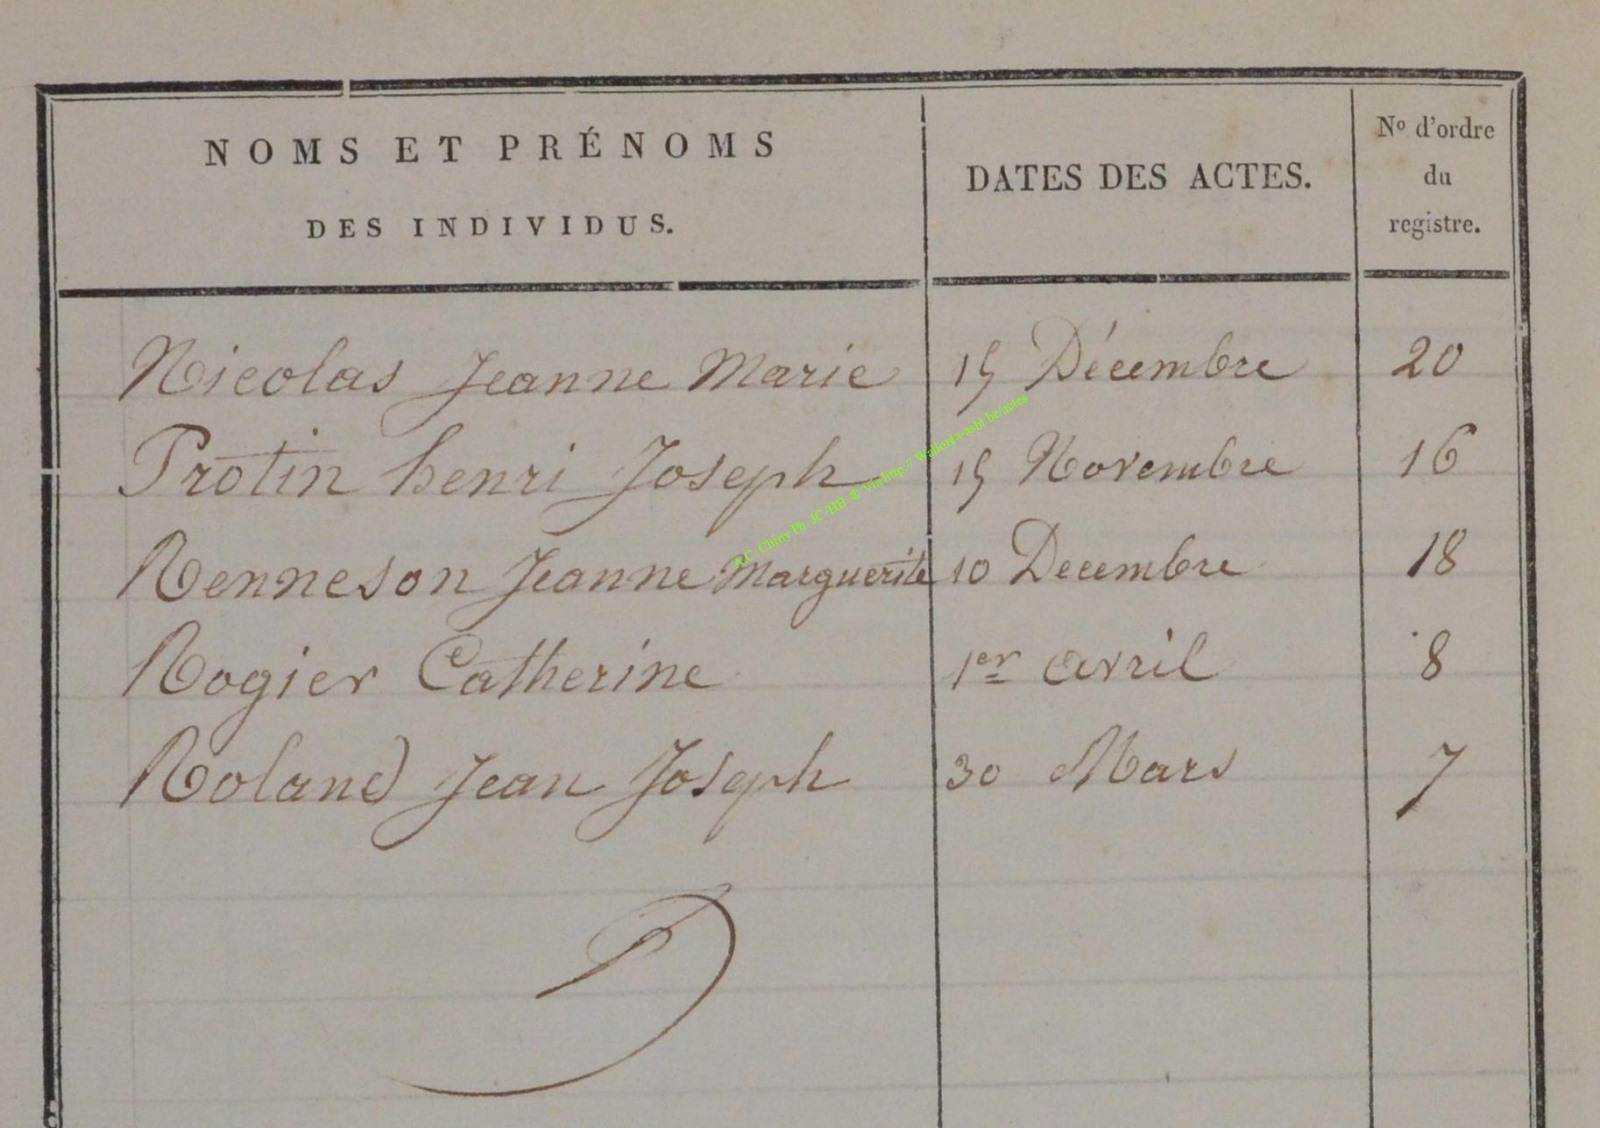 NOMS ET PRÉNOMS
DES INDIVIDUS.
DATES DES ACTES.
Nº d'ordre
du
registre.
Nicolas Jeanne Marie 15 Décembre 20
Protin henri Joseph 15 Novembre 16
Renneson Jeanne Marguerite 10 Decembre 18
Rogier Catherine 1er avril 8
Roland Jean Joseph 30 Mars 7